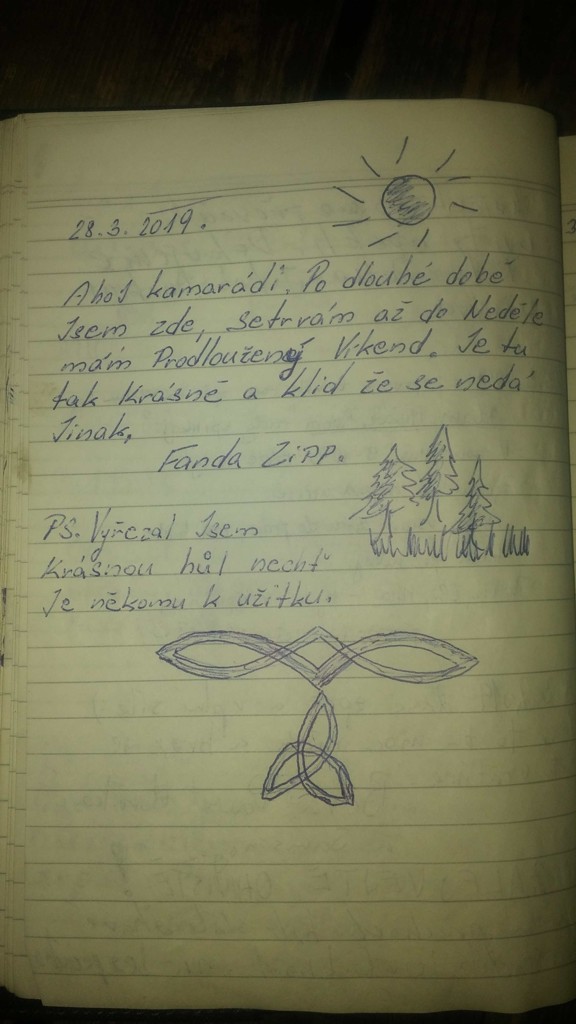 28.3. 2019.
Ahoj kamarádi. Po dlouhé době
Jsem zde, Setrvám až do Neděle
mám Prodloužený Víkend. Je tu
tak Krásně a klid že se nedá
Jinak.
Fanda ZiPP.
PS. Vyřezal Jsem
Krásnou hůl nechť
Je někomu k užitku.